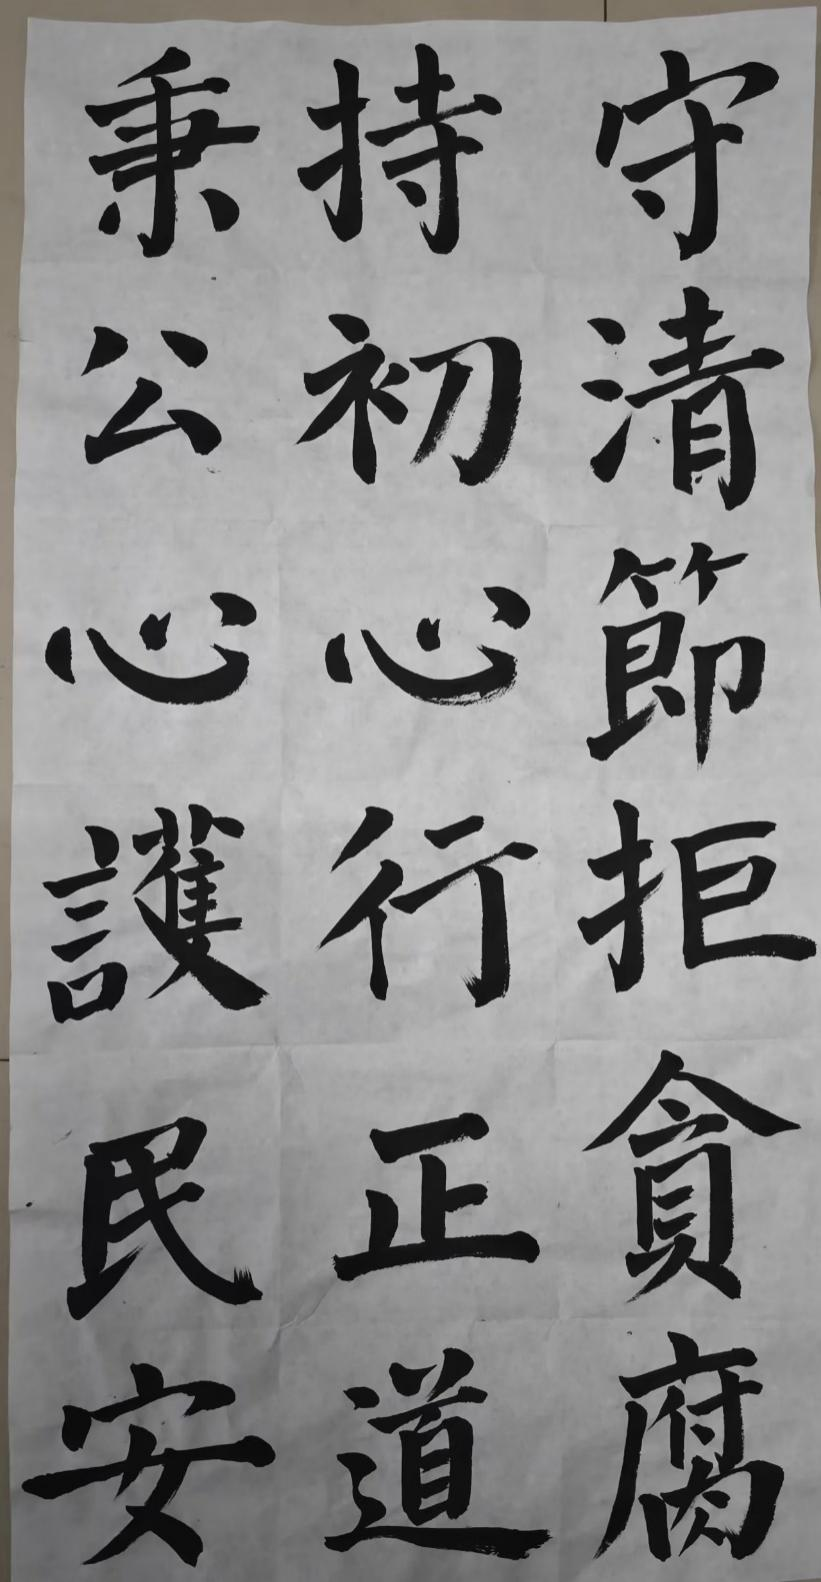 守清節拒貪腐
持初心行正道
秉公心護民安